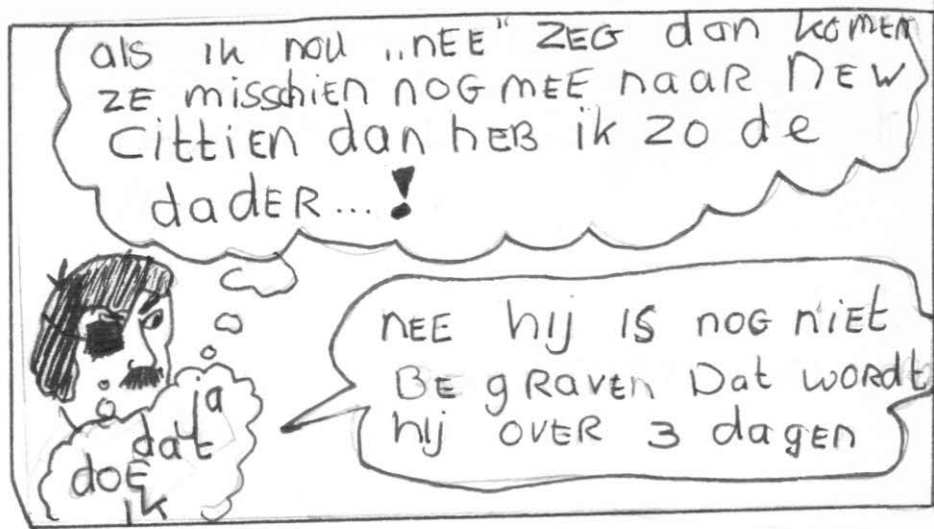 als ik nou „nEE" ZEG dan komEn
ZE misschiEn nOG mEE naaR nEW
Cittien dan hEB ik zo de
dadER...!
ja
dat
doE
ik
nEE hij IS nOG niEt
BEgRavEn Dat woRdt
hij ovER 3 dagen